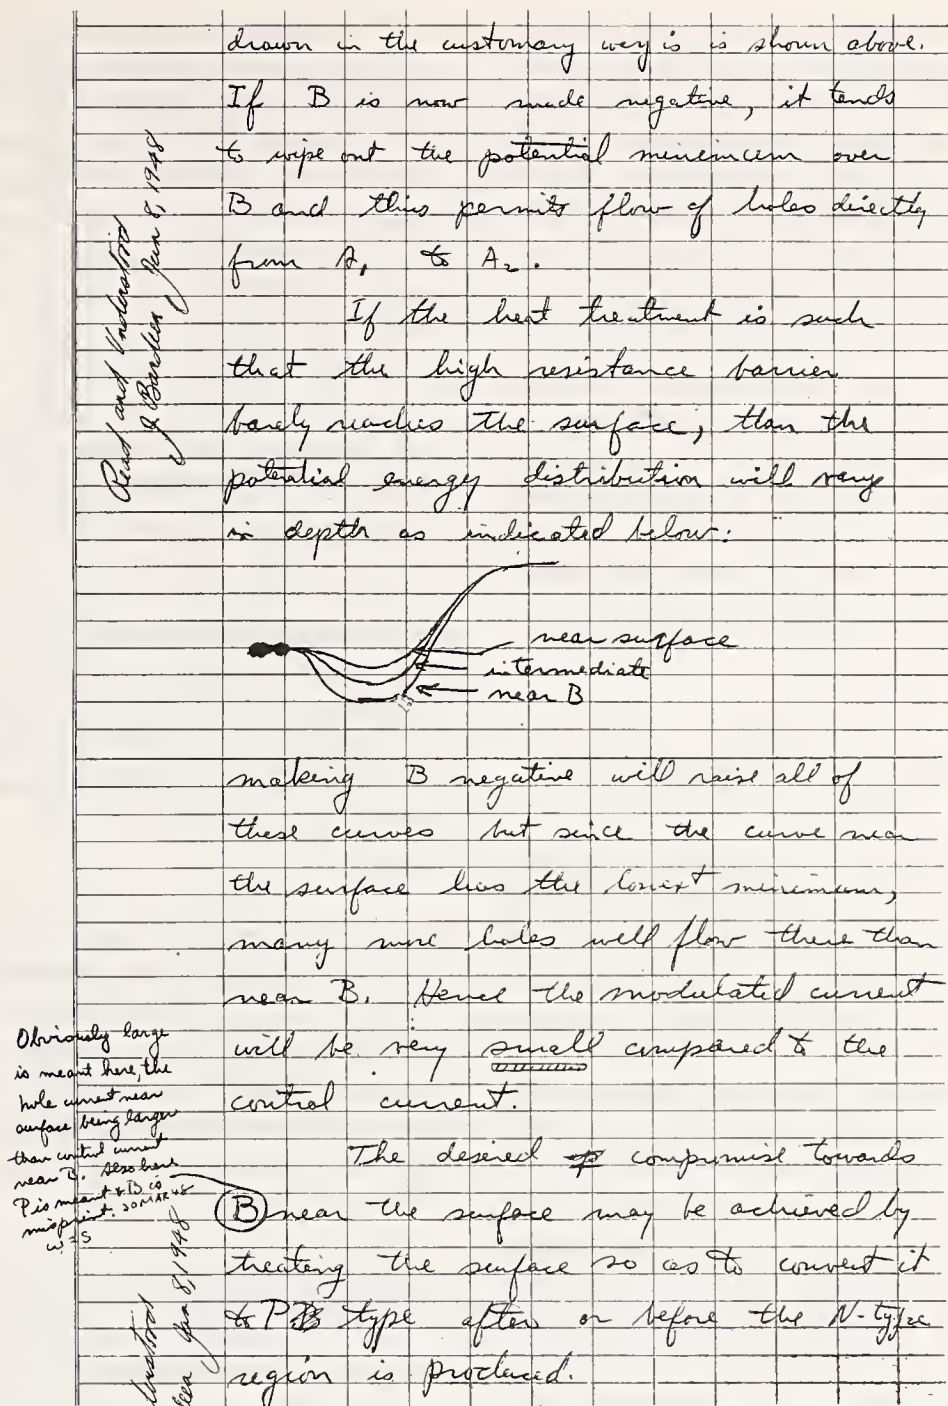 drawn in the customary way is is shown above.
If B is now made negative, it tends
to wipe out the potential minimum over
B and thus permits flow of holes directly
from A₁ to A₂.
If the heat treatment is such
that the high resistance barrier
barely reaches the surface, than the
potential energy distribution will vary
in depth as indicated below:
near surface
intermediate
near B
making B negative will raise all of
these curves but since the curve near
the surface has the lowest minimum,
many more holes will flow there than
near B. Hence the modulated current
will be very small compared to the
control current.
The desired compromise towards
B near the surface may be achieved by
treating the surface so as to convert it
to P type after or before the N-type
region is produced.
Read and Understood
J Bardeen Jan 8, 1948
Obviously large
is meant here, the
hole current near
surface being larger
than control current
near B. Also here
P is meant & B is
misprint. 30 MAR 48
WS
Jan 8, 1948